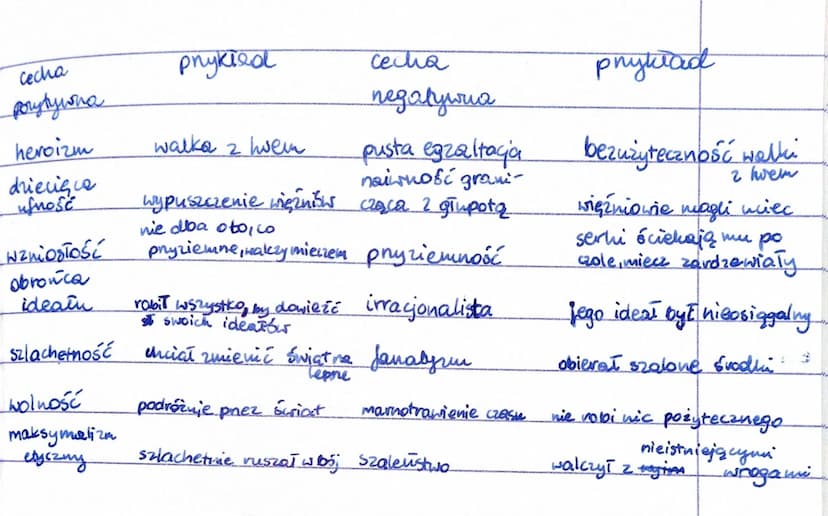 cecha przykład cecha przykład
pozytywna negatywna
heroizm walka z lwem pusta egzaltacja bezużyteczność walki
z lwem
dziecięca naiwność grani-
ufność wypuszczenie więźniów cząca z głupotą więźniowie mogli uciec
nie dba o to, co serki ściekają mu po
wzniosłość przyziemne, walczy mieczem przyziemność czole, miecz zardzewiały
obrońca
ideału robił wszystko, by dowieść irracjonalista jego ideał był nieosiągalny
swoich ideałów
szlachetność chciał zmienić świat na fanatyzm obierał szalone środki
lepne
wolność podróżuje przez świat marnotrawienie czasu nie robi nic pożytecznego
maksymalizm nieistniejącymi
etyczny szlachetnie ruszał w bój szaleństwo walczył z wrogami